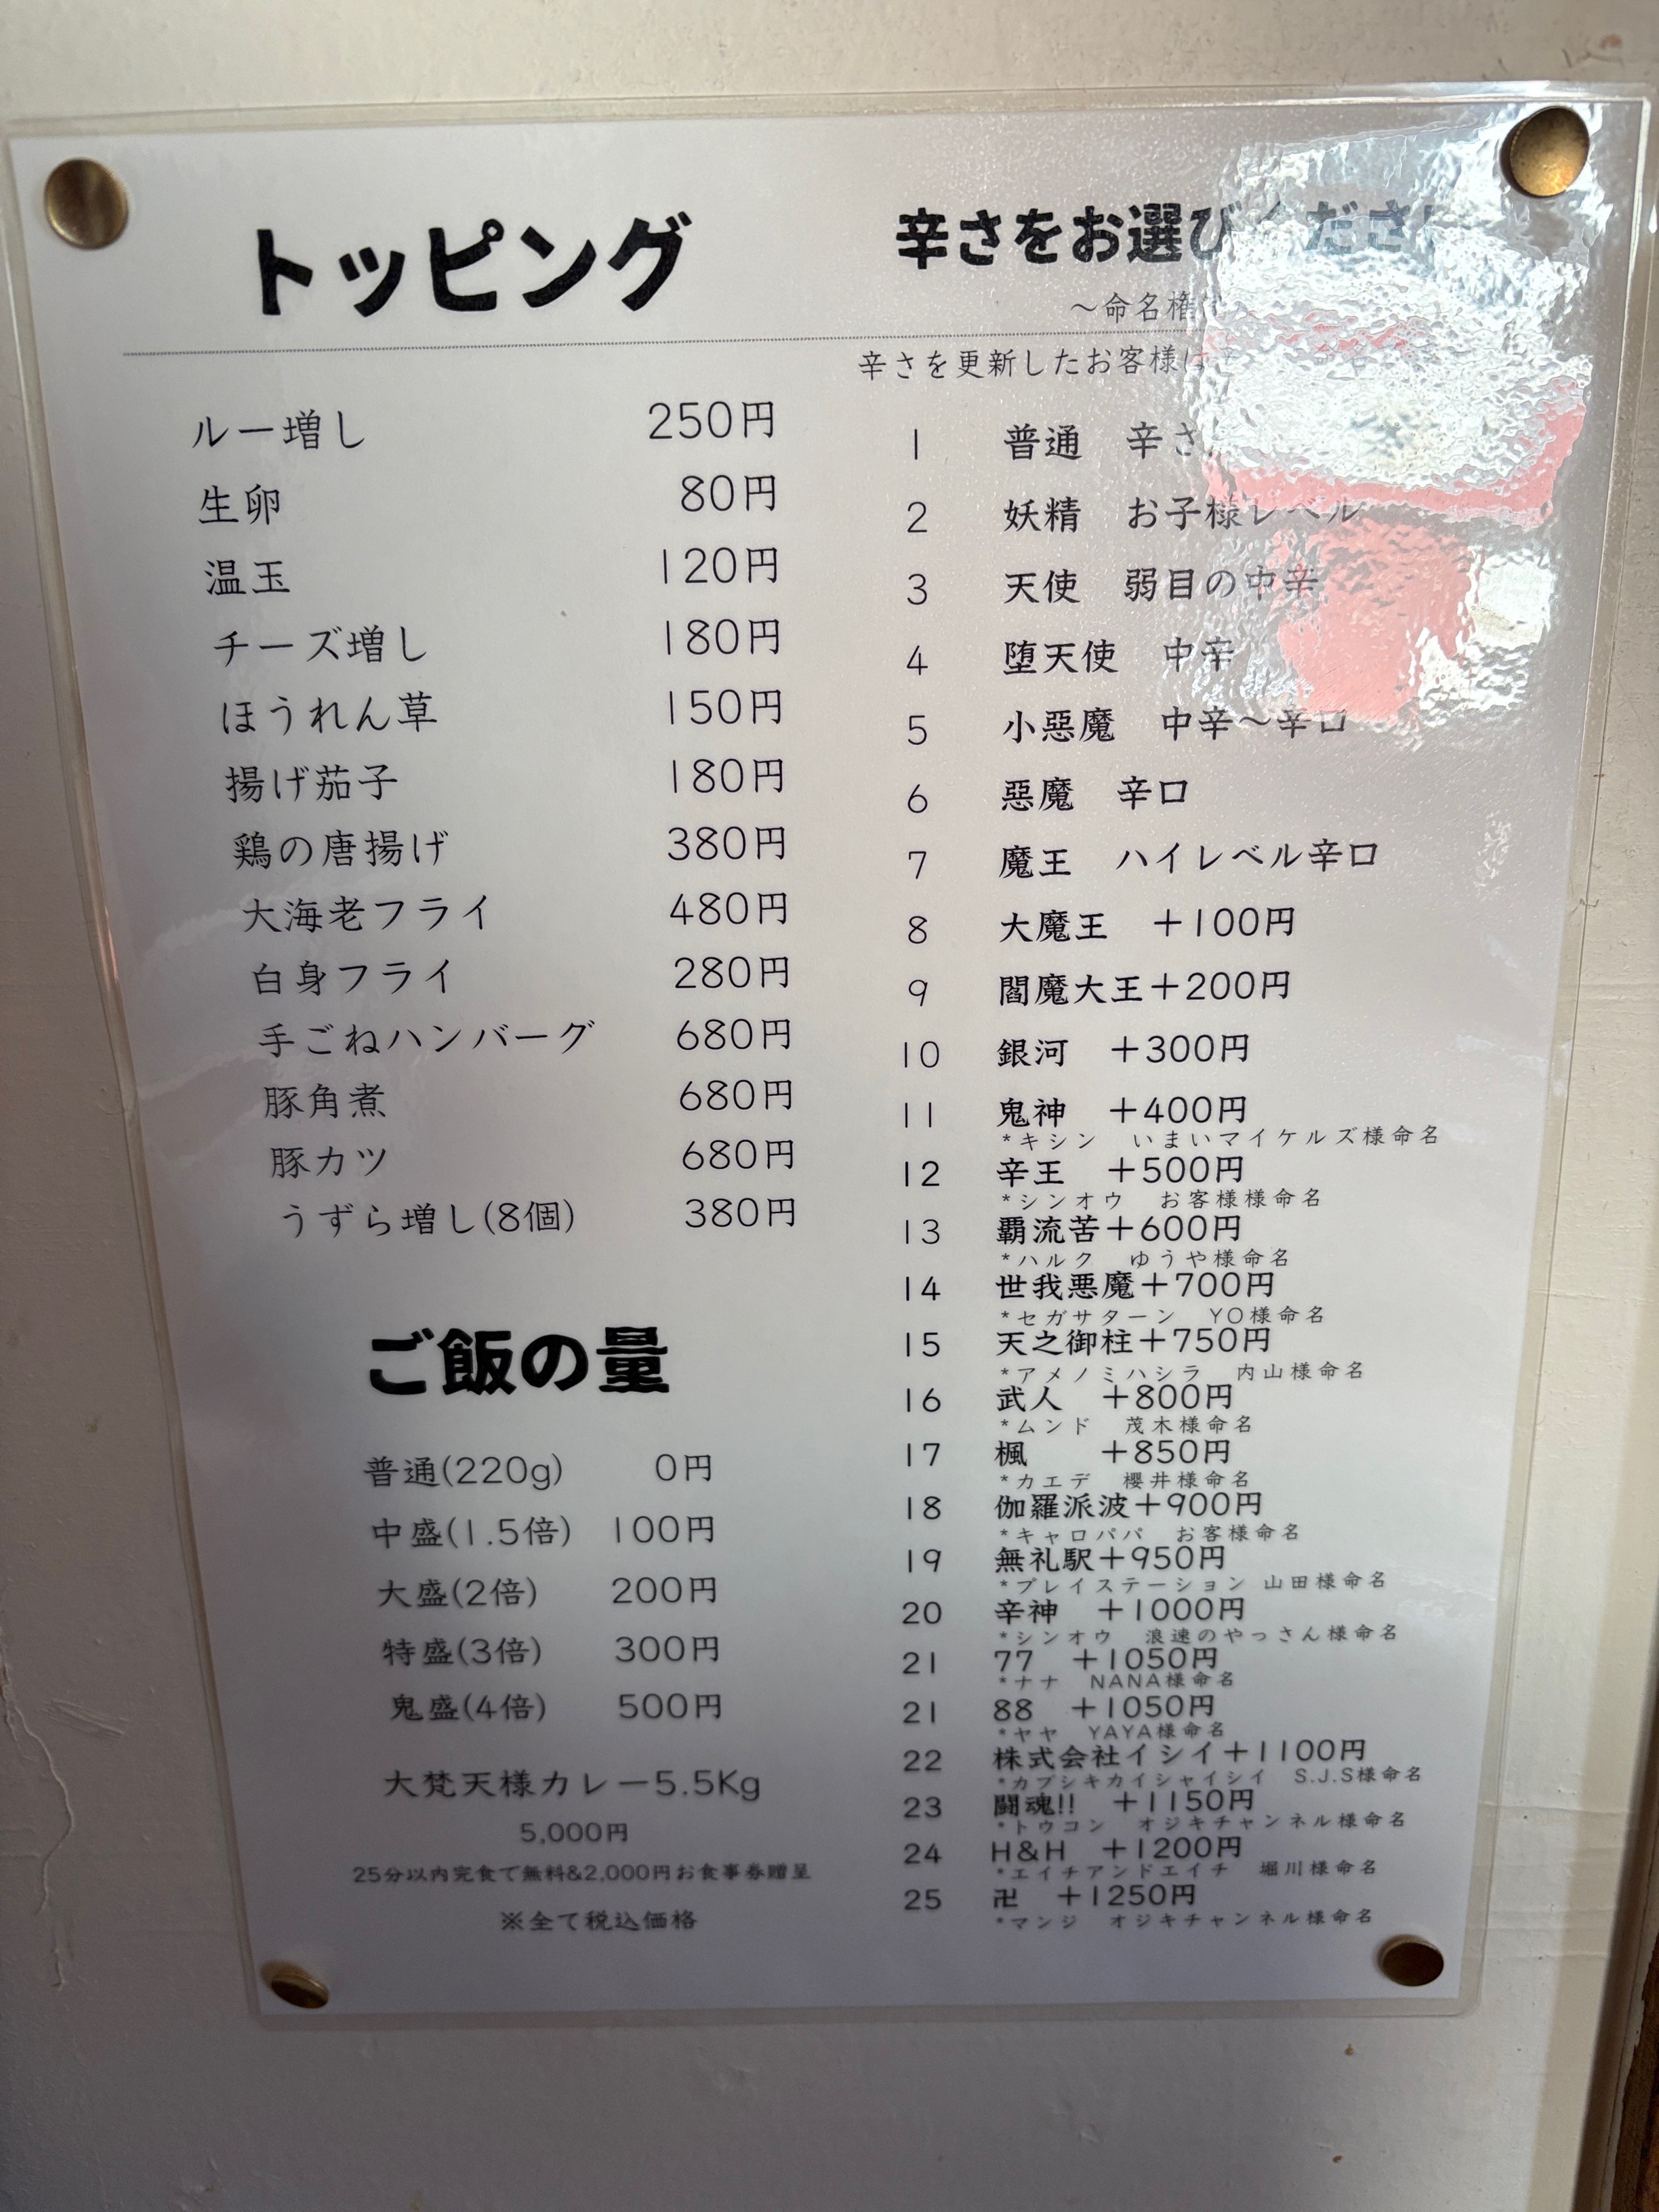 トッピング
ルー増し 250円
生卵 80円
温玉 120円
チーズ増し 180円
ほうれん草 150円
揚げ茄子 180円
鶏の唐揚げ 380円
大海老フライ 480円
白身フライ 280円
手ごねハンバーグ 680円
豚角煮 680円
豚カツ 680円
うずら増し(8個) 380円
ご飯の量
普通(220g) 0円
中盛(1.5倍) 100円
大盛(2倍) 200円
特盛(3倍) 300円
鬼盛(4倍) 500円
大梵天様カレー5.5Kg
5,000円
25分以内完食で無料&2,000円お食事券贈呈
※全て税込価格
辛さをお選びください
～命名権
辛さを更新したお客様は
1 普通 辛さ
2 妖精 お子様レベル
3 天使 弱目の中辛
4 堕天使 中辛
5 小惡魔 中辛～辛口
6 惡魔 辛口
7 魔王 ハイレベル辛口
8 大魔王 +100円
9 閻魔大王+200円
10 銀河 +300円
11 鬼神 +400円
*キシン いまいマイケルズ様命名
12 辛王 +500円
*シンオウ お客様様命名
13 覇流苦+600円
*ハルク ゆうや様命名
14 世我悪魔+700円
*セガサターン YO様命名
15 天之御柱+750円
*アメノミハシラ 内山様命名
16 武人 +800円
*ムンド 茂木様命名
17 楓 +850円
*カエデ 櫻井様命名
18 伽羅派波+900円
*キャロパパ お客様命名
19 無礼駅+950円
*プレイステーション 山田様命名
20 辛神 +1000円
*シンオウ 浪速のやっさん様命名
21 77 +1050円
*ナナ NANA様命名
21 88 +1050円
*ヤヤ YAYA様命名
22 株式会社イシイ+1100円
*カブシキカイシャイシイ S.J.S様命名
23 闘魂!! +1150円
*トウコン オジキチャンネル様命名
24 H&H +1200円
*エイチアンドエイチ 堀川様命名
25 卍 +1250円
*マンジ オジキチャンネル様命名